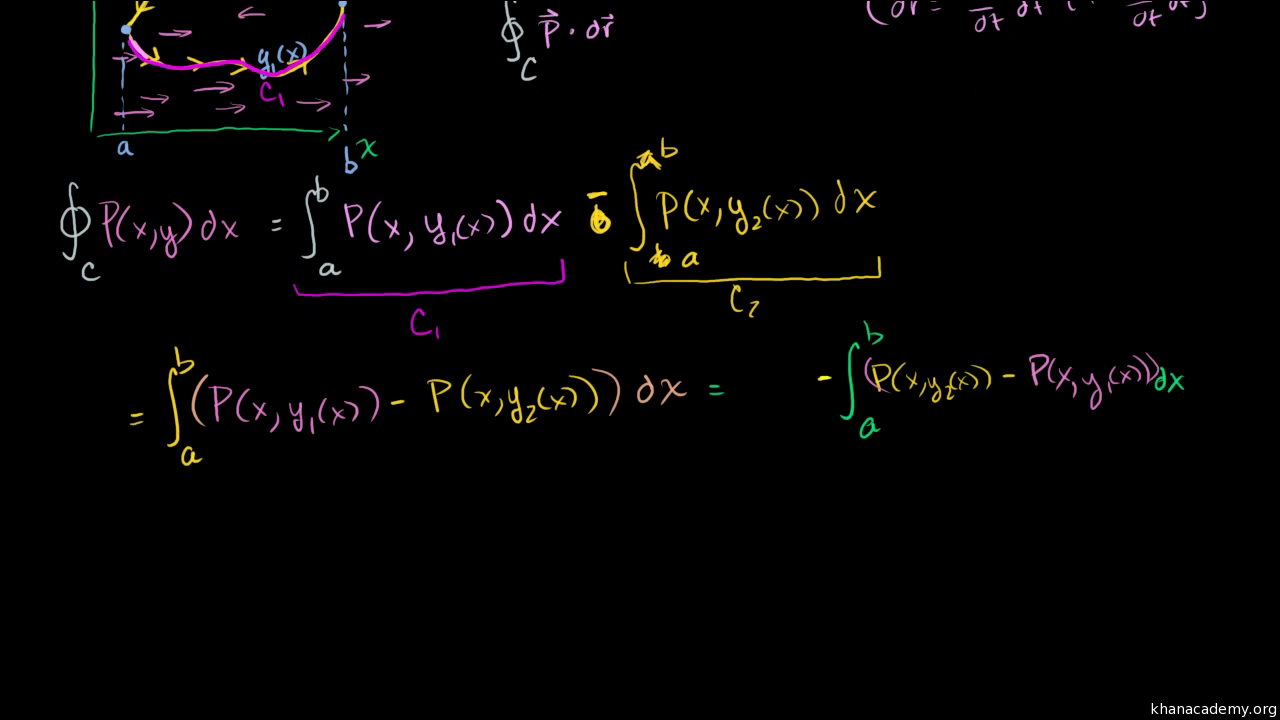 y₁(x)
C₁
a
b x
∮_C P⃗ · dr⃗
∮_C P(x,y) dx = ∫_a^b P(x, y₁(x)) dx - ∫_a^b P(x, y₂(x)) dx
C₁
C₂
= ∫_a^b (P(x, y₁(x)) - P(x, y₂(x))) dx = - ∫_a^b (P(x, y₂(x)) - P(x, y₁(x))) dx
khanacademy.org